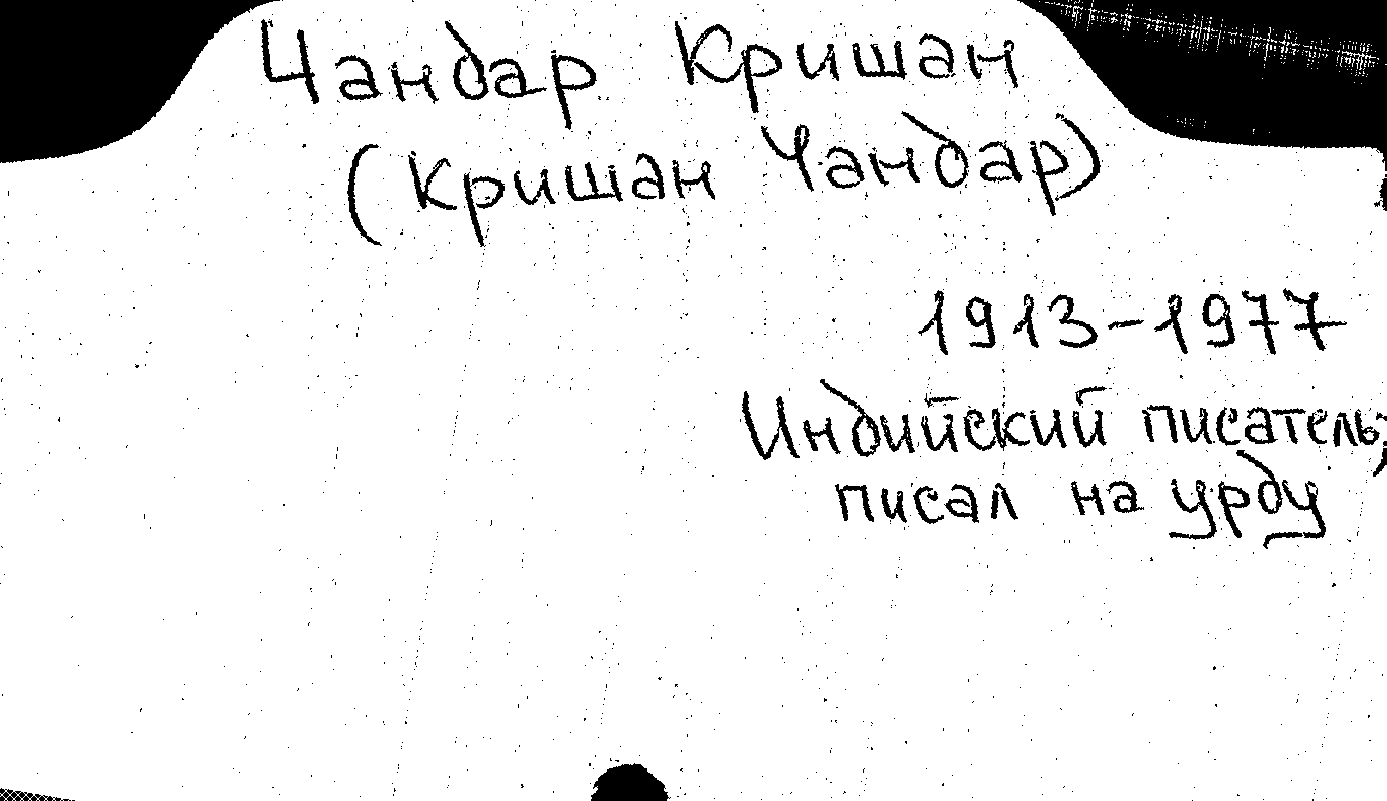 Чандар Кришан
(Кришан Чандар)
1913-1977
Индийский писатель;
писал на урду